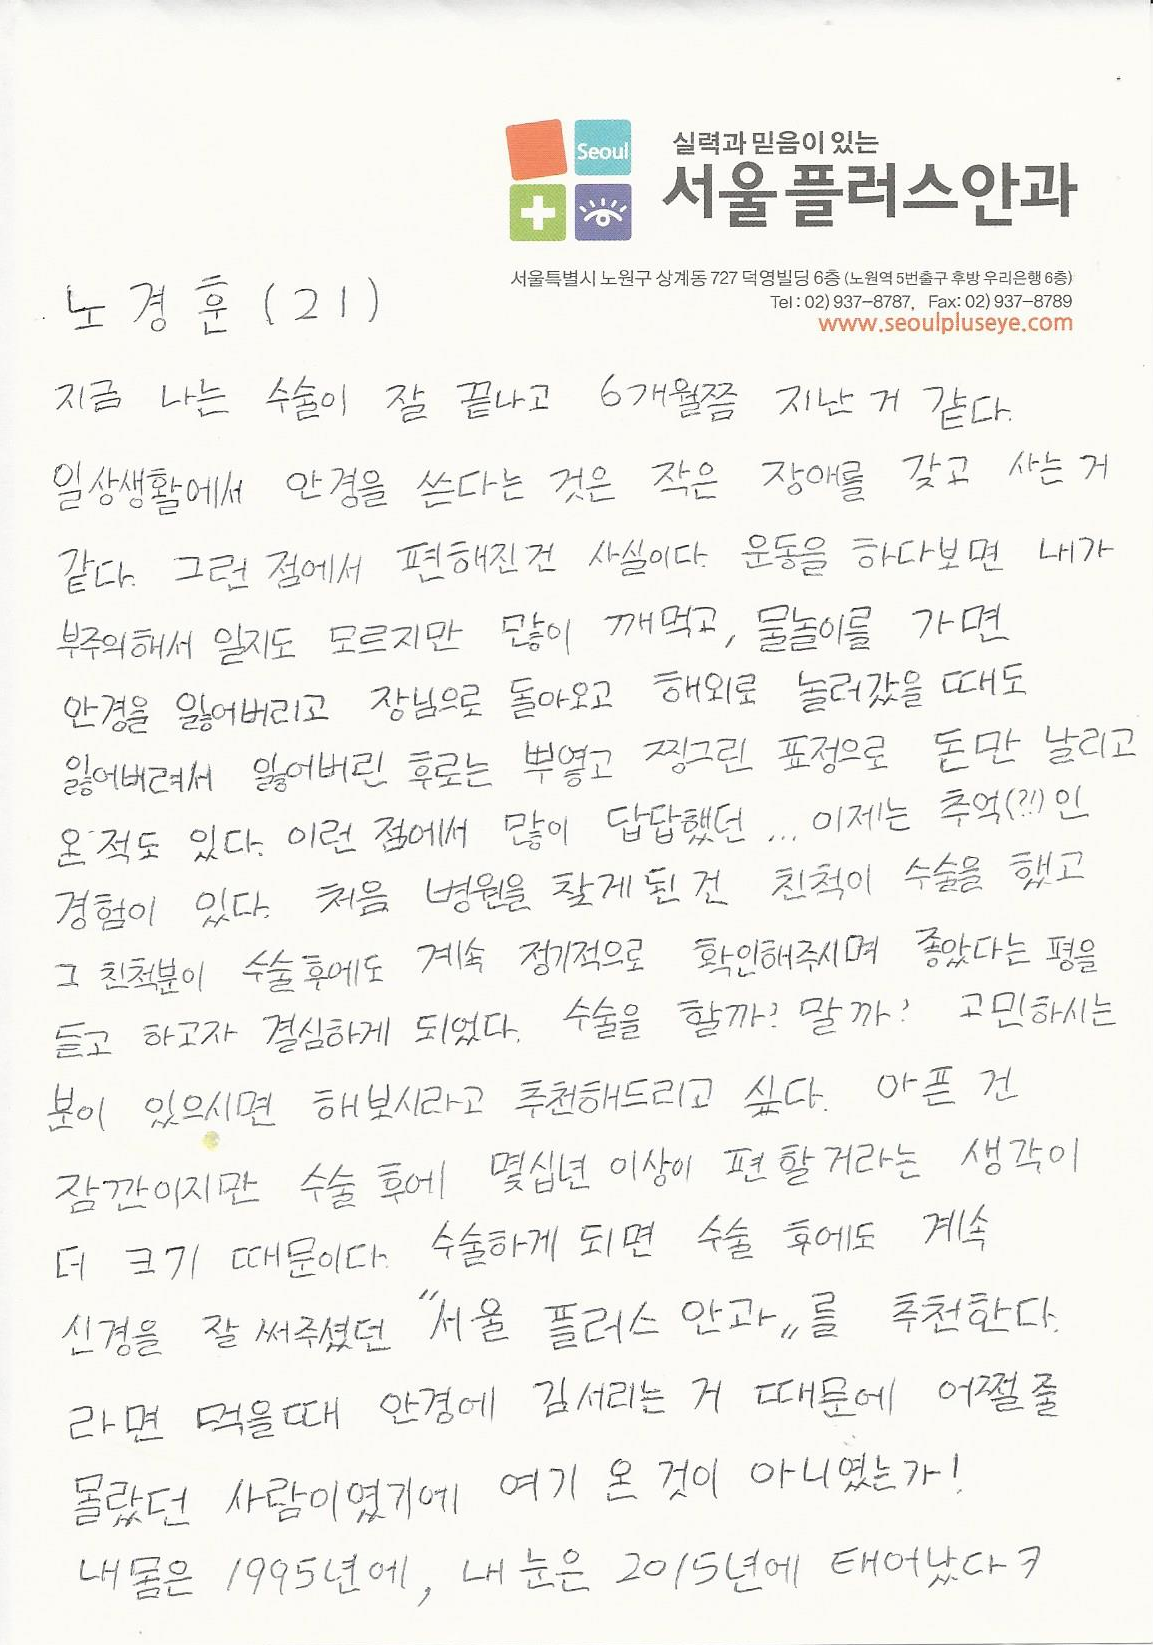 Seoul
실력과 믿음이 있는
서울플러스안과
서울특별시 노원구 상계동 727 덕영빌딩 6층 (노원역 5번출구 후방 우리은행 6층)
Tel : 02) 937-8787, Fax: 02) 937-8789
www.seoulpluseye.com
노경훈 (21)
지금 나는 수술이 잘 끝나고 6개월쯤 지난 거 같다.
일상생활에서 안경을 쓴다는 것은 작은 장애를 갖고 사는 거
같다. 그런 점에서 편해진건 사실이다. 운동을 하다보면 내가
부주의해서 일지도 모르지만 많이 깨먹고, 물놀이를 가면
안경을 잃어버리고 장님으로 돌아오고 해외로 놀러갔을 때도
잃어버려서 잃어버린 후로는 뿌옇고 찡그린 표정으로 돈만 날리고
온 적도 있다. 이런 점에서 많이 답답했던 ... 이제는 추억(?!)인
경험이 있다. 처음 병원을 찾게된 건 친척이 수술을 했고
그 친척분이 수술후에도 계속 정기적으로 확인해주시며 좋았다는 평을
듣고 하고자 결심하게 되었다. 수술을 할까? 말까? 고민하시는
분이 있으시면 해보시라고 추천해드리고 싶다. 아픈 건
잠깐이지만 수술 후에 몇십년 이상이 편할거라는 생각이
더 크기 때문이다. 수술하게 되면 수술 후에도 계속
신경을 잘 써주셨던 "서울 플러스 안과"를 추천한다.
라면 먹을때 안경에 김서리는 거 때문에 어쩔 줄
몰랐던 사람이였기에 여기 온 것이 아니였는가!
내몸은 1995년에, 내 눈은 2015년에 태어났다ㅋ